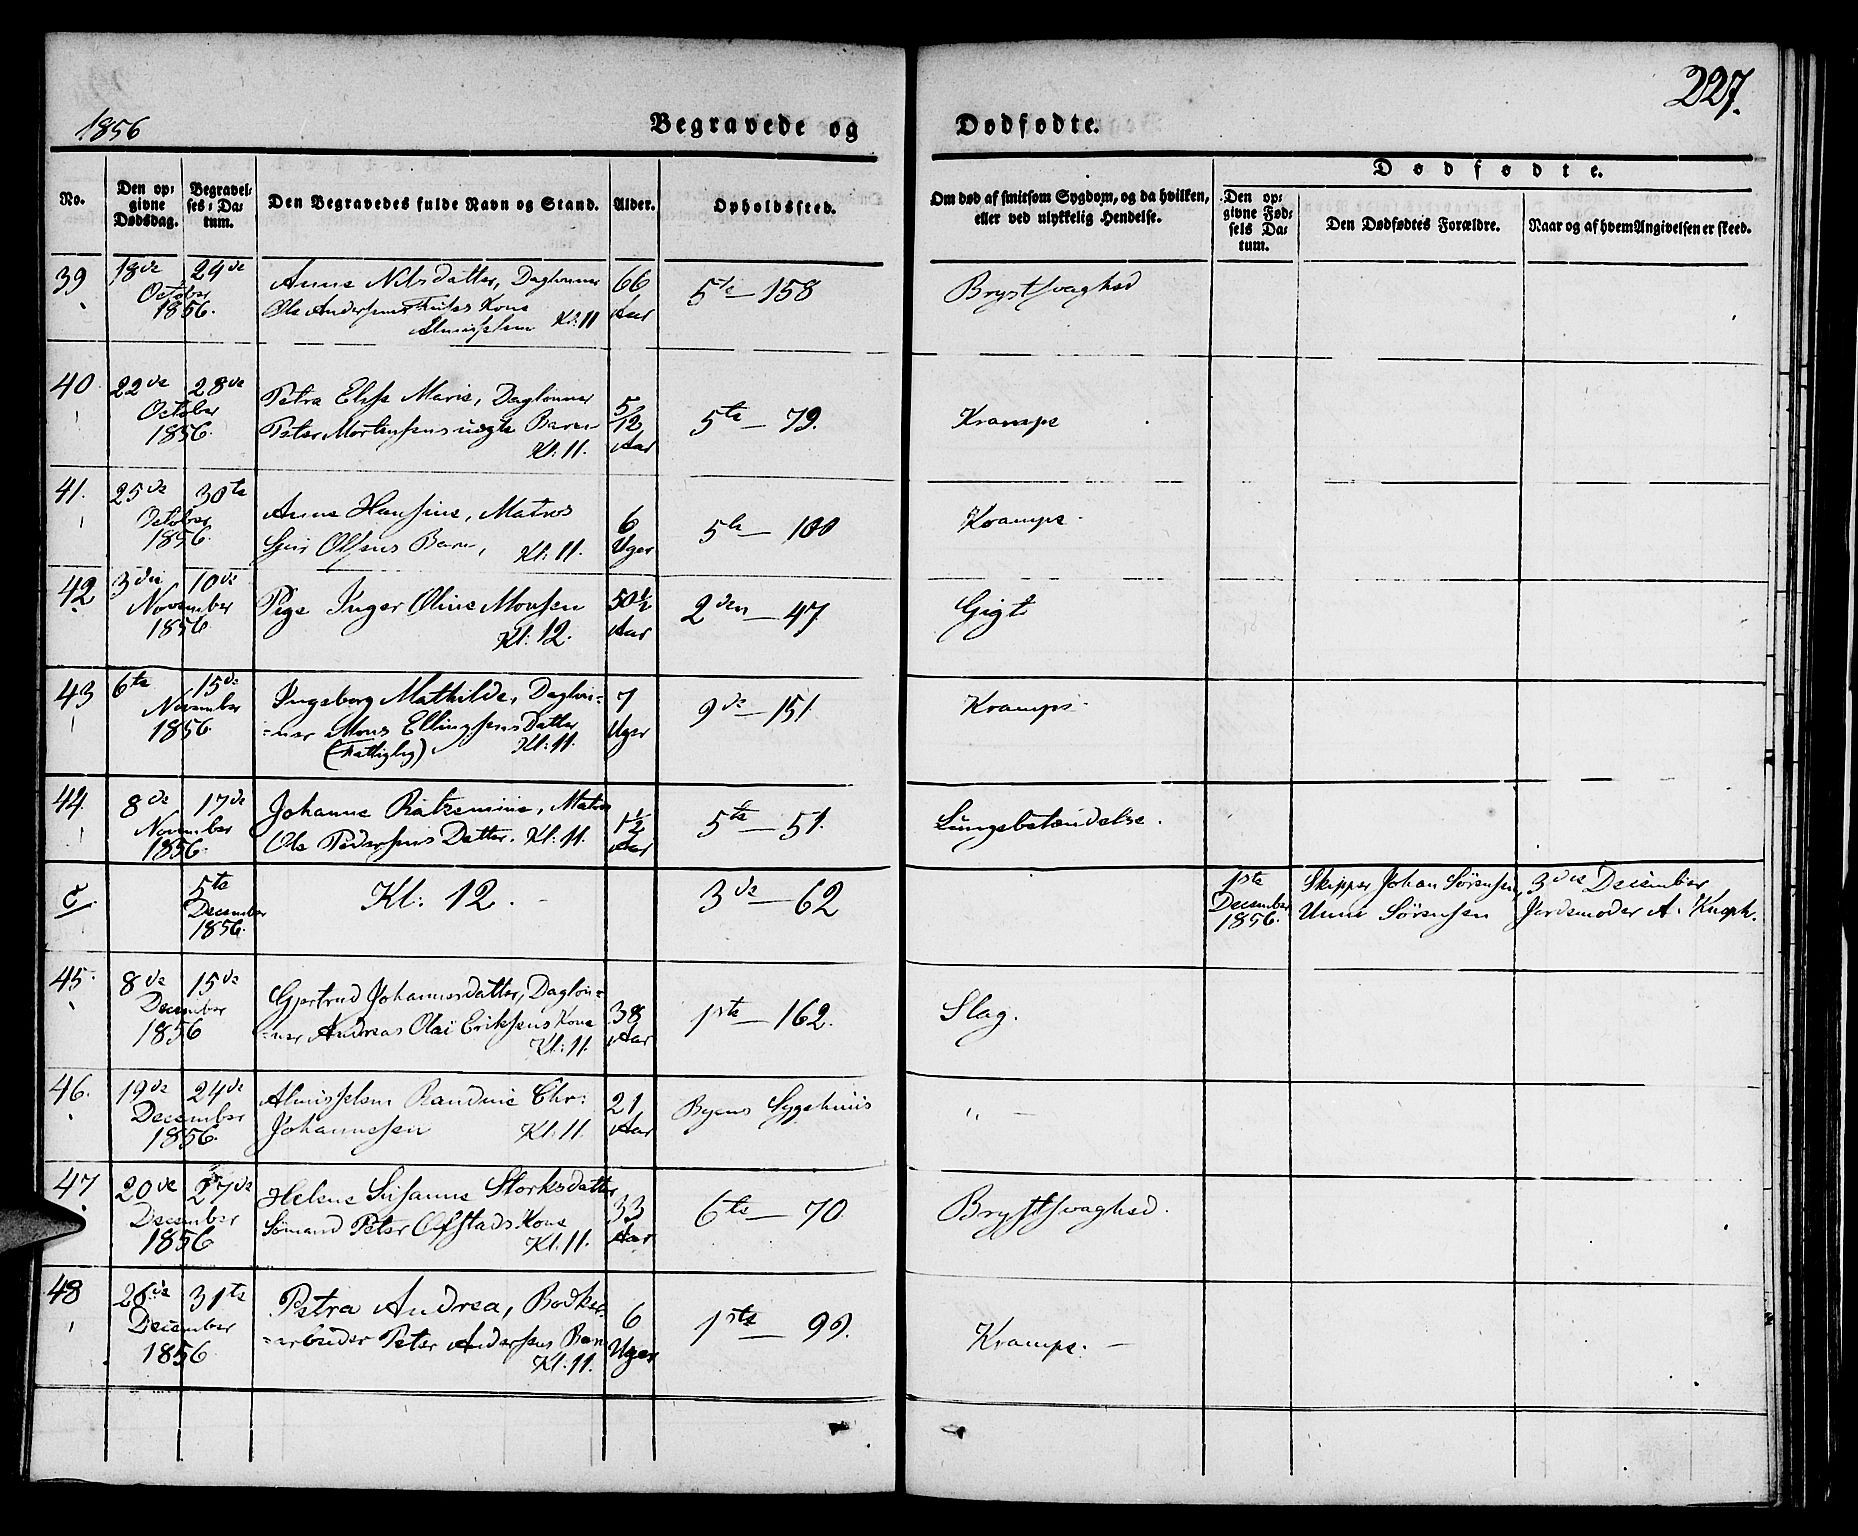 1856
Begravede og Dødfødte.
227.
No.
Den op=
givne
Dødsdag.
Begravel=
ses=Da=
tum.
Den Begravedes fulde Navn og Stand.
Alder.
Opholdssted.
Om død af smitsom Sygdom, og da hvilken,
eller ved ulykkelig Hendelse.
Dødfødte.
Den op=
givne Fød=
sels Da=
tum.
Den Dødfødtes Forældre.
Naar og af hvem Angivelsen er skeed.
39 18de 24de Anne Nilsdatter, Daglønner 66 5te — 158 Brystsvaghed
October Ole Andersens Kone Aar
1856. Almisselem Kl: 11
40. 22de 28de Petra Elise Marie, Daglønner 5/12 5te — 79. Krampe
October Peter Mortensens uægte Barn Aar
1856. Kl. 11.
41. 25de 30te Anne Hansine, Matros 6 5te — 100 Krampe.
October Olsens Barn, Kl: 11. Uger
1856.
42 3die 10de Pige Inger Oline Monsen 50½ 2den — 47 Gigt
November Kl: 12. Aar
1856
43 6te 15de Ingeborg Mathilde, Dagløn= 7 9de — 151 Krampe.
November =ner Mons Ellingsens Datter Uger
1856. Kl: 11.
44. 8de 17de Johanne Matros 1½ 5te — 51. Lungebetændelse.
November Ole Pedersens Datter. Kl: 11. Aar
1856.
c. 5te Kl: 12. 3de — 62 1ste Skipper Johan Sørensen, 3die December
December December Unni Sørensen Jordemoder A. Knaph.
1856. 1856.
45. 8de 15de Gjertrud Johannesdatter, Dagløn= 38 1ste — 162. Slag.
December =ner Andreas Olai Eriksens Kone Aar
1856 Kl: 11.
46. 19de 24de Almisselem Randine Chr: 21 Byens Sygehuus " —
December Johannesen Kl: 11. Aar
1856.
47 20de 27de Helene Susanne Storksdatter 33 6te — 70 Brystsvaghed.
December Sømand Peter Ofstads Kone Aar
1856 Kl. 11.
48 26de 31te Petra Andrea, Bødker= 6 1ste — 99. Krampe. —
December =arbeider Peter Andersens Barn Uger
1856 Kl. 11.